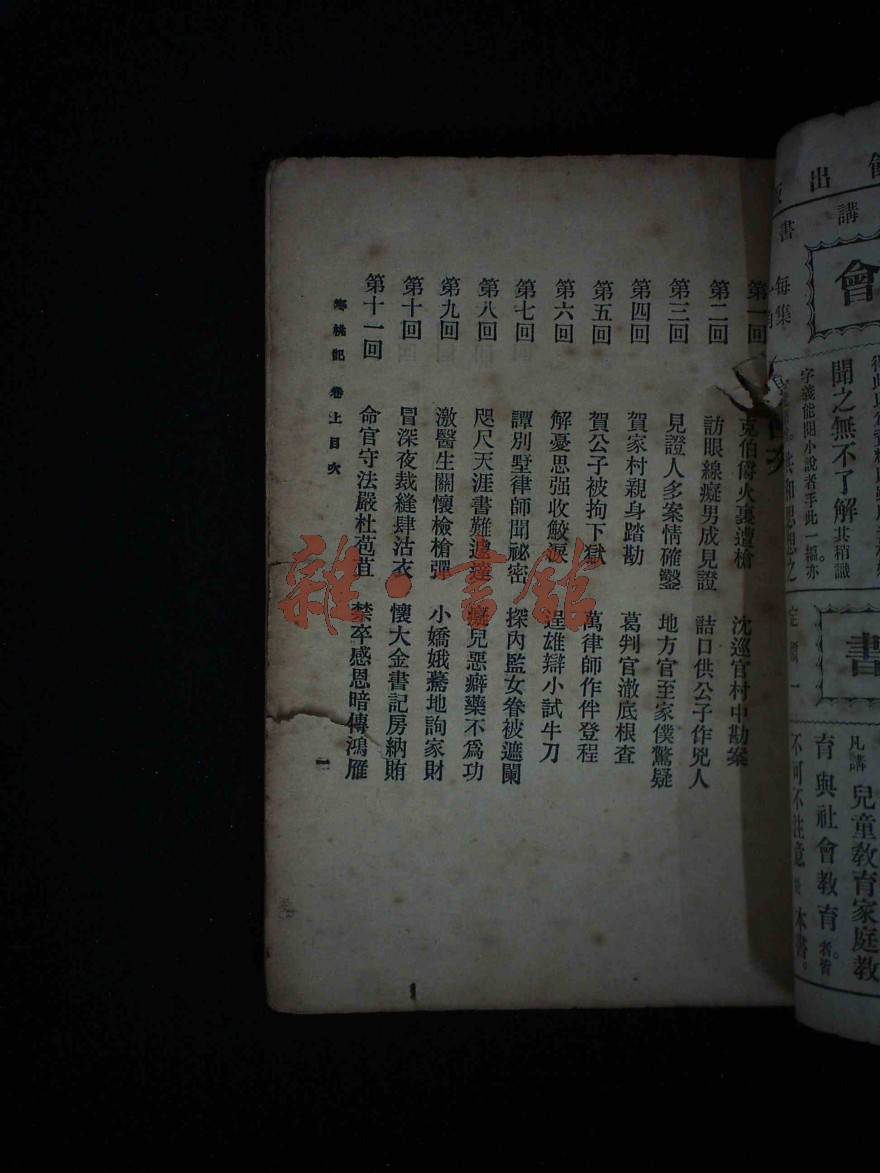 第一回 克伯爵火裏遭槍 沈巡官村中勘案
第二回 訪眼線癡男成見證 詰口供公子作兇人
第三回 見證人多案情確鑿 地方官至家僕驚疑
第四回 賀家村親身踏勘 葛判官澈底根查
第五回 賀公子被拘下獄 萬律師作伴登程
第六回 解憂思强收鮫淚 逞雄辯小試牛刀
第七回 譚別墅律師聞祕密 探內監女眷被遮闌
第八回 咫尺天涯書難遞達 癡兒惡癖藥不爲功
第九回 激醫生關懷檢槍彈 小嬌娥驀地詢家財
第十回 冒深夜裁縫肆沽衣 懷大金書記房納賄
第十一回 命官守法嚴杜苞苴 禁卒感恩暗傳鴻雁
寒桃記 卷上目次
一
雜·書館
出
書 講
會
每集
聞之無不了解其稍識
字義能閱小說者手此一編亦
共和思想之
書
定
一
凡講兒童敎育家庭敎
育與社會敎育者皆
不可不注意 本書。